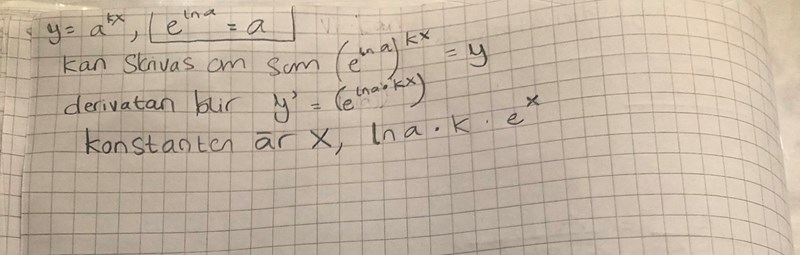 y = a^kx, e^ln a = a
kan skrivas om som (e^ln a)^kx = y
derivatan blir y' = (e^ln a · kx)
konstanten är x, ln a · k · e^x